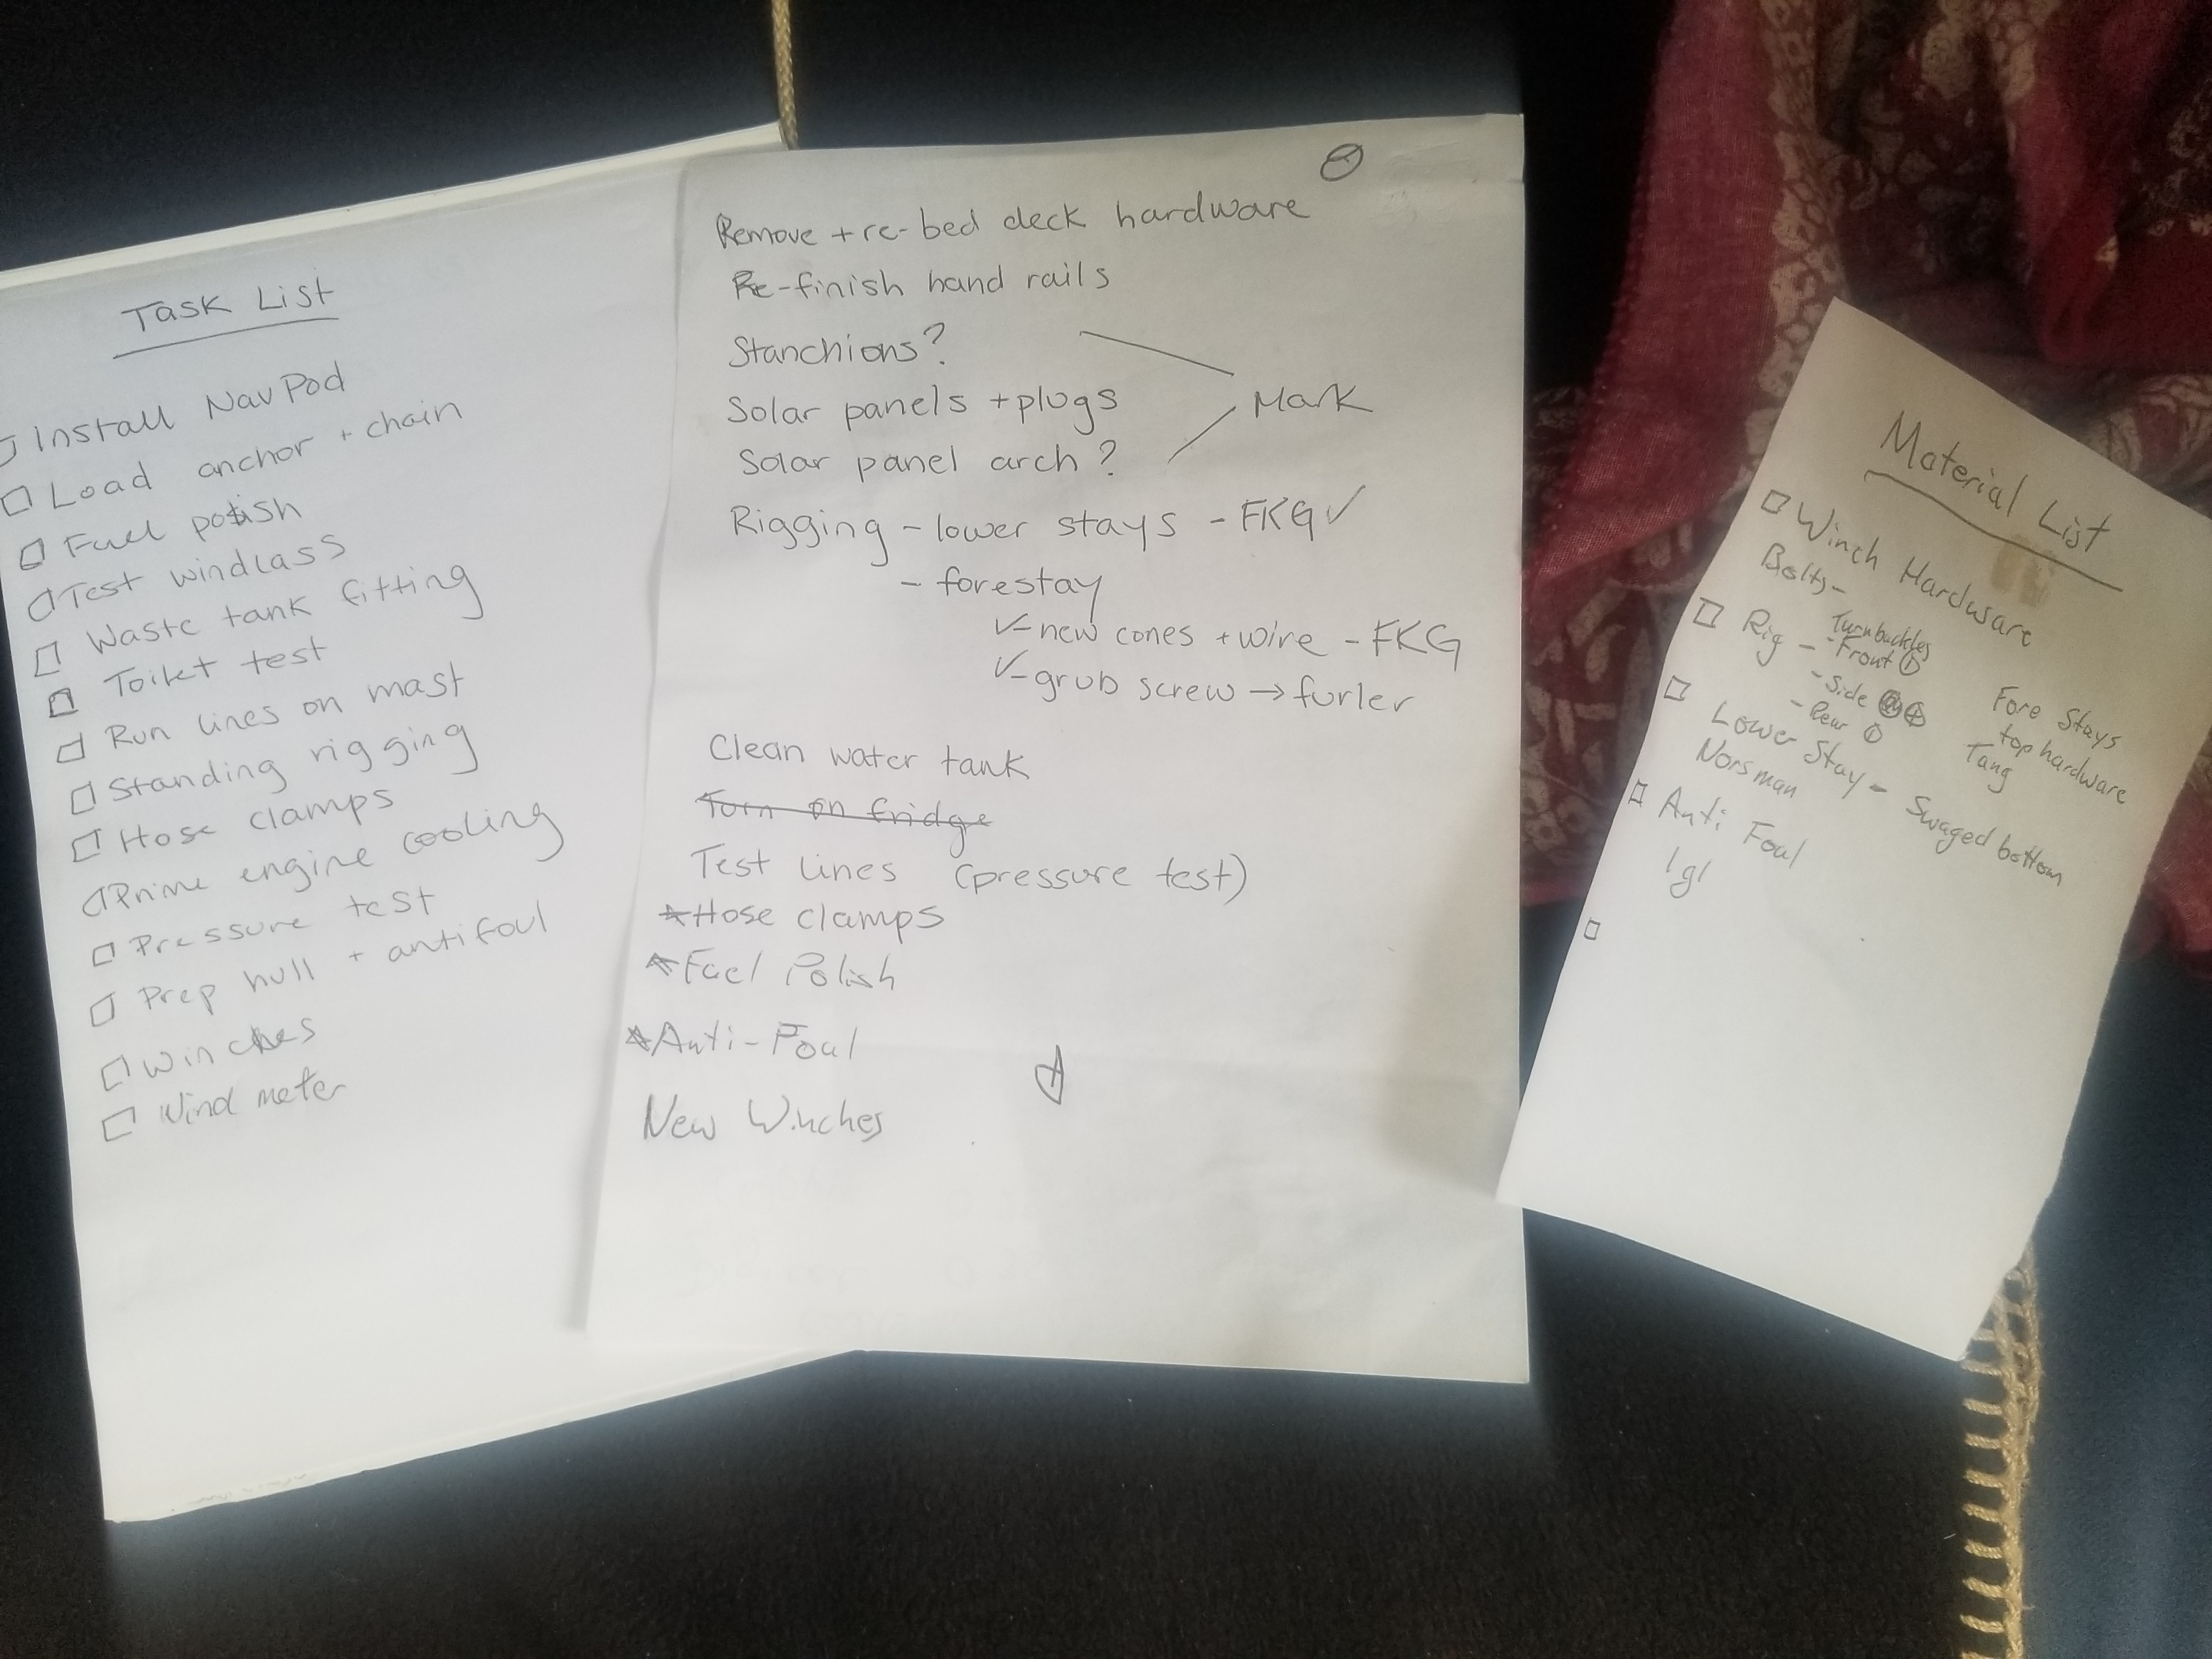 Task List
Install NavPod
Load anchor + chain
Fuel polish
Test windlass
Waste tank fitting
Toilet test
Run lines on mast
Standing rigging
Hose clamps
Prime engine cooling
Pressure test
Prep hull + antifoul
Winches
Wind meter
Remove + re-bed deck hardware
Re-finish hand rails
Stanchions?
Solar panels + plugs
Mark
Solar panel arch?
Rigging - lower stays - FKG ✓
- forestay
✓- new cones + wire - FKG
✓- grub screw → furler
Clean water tank
Turn on fridge
Test lines (pressure test)
*Hose clamps
*Fuel Polish
*Anti-Foul
New Winches
Material List
Winch Hardware
Bolts -
Turnbuckles
Rig - - Front 1
- Side 4
- Rear 1
Fore Stays
top hardware
Tang
Lower Stay - Swaged bottom
Norsman
Anti Foul
1gl